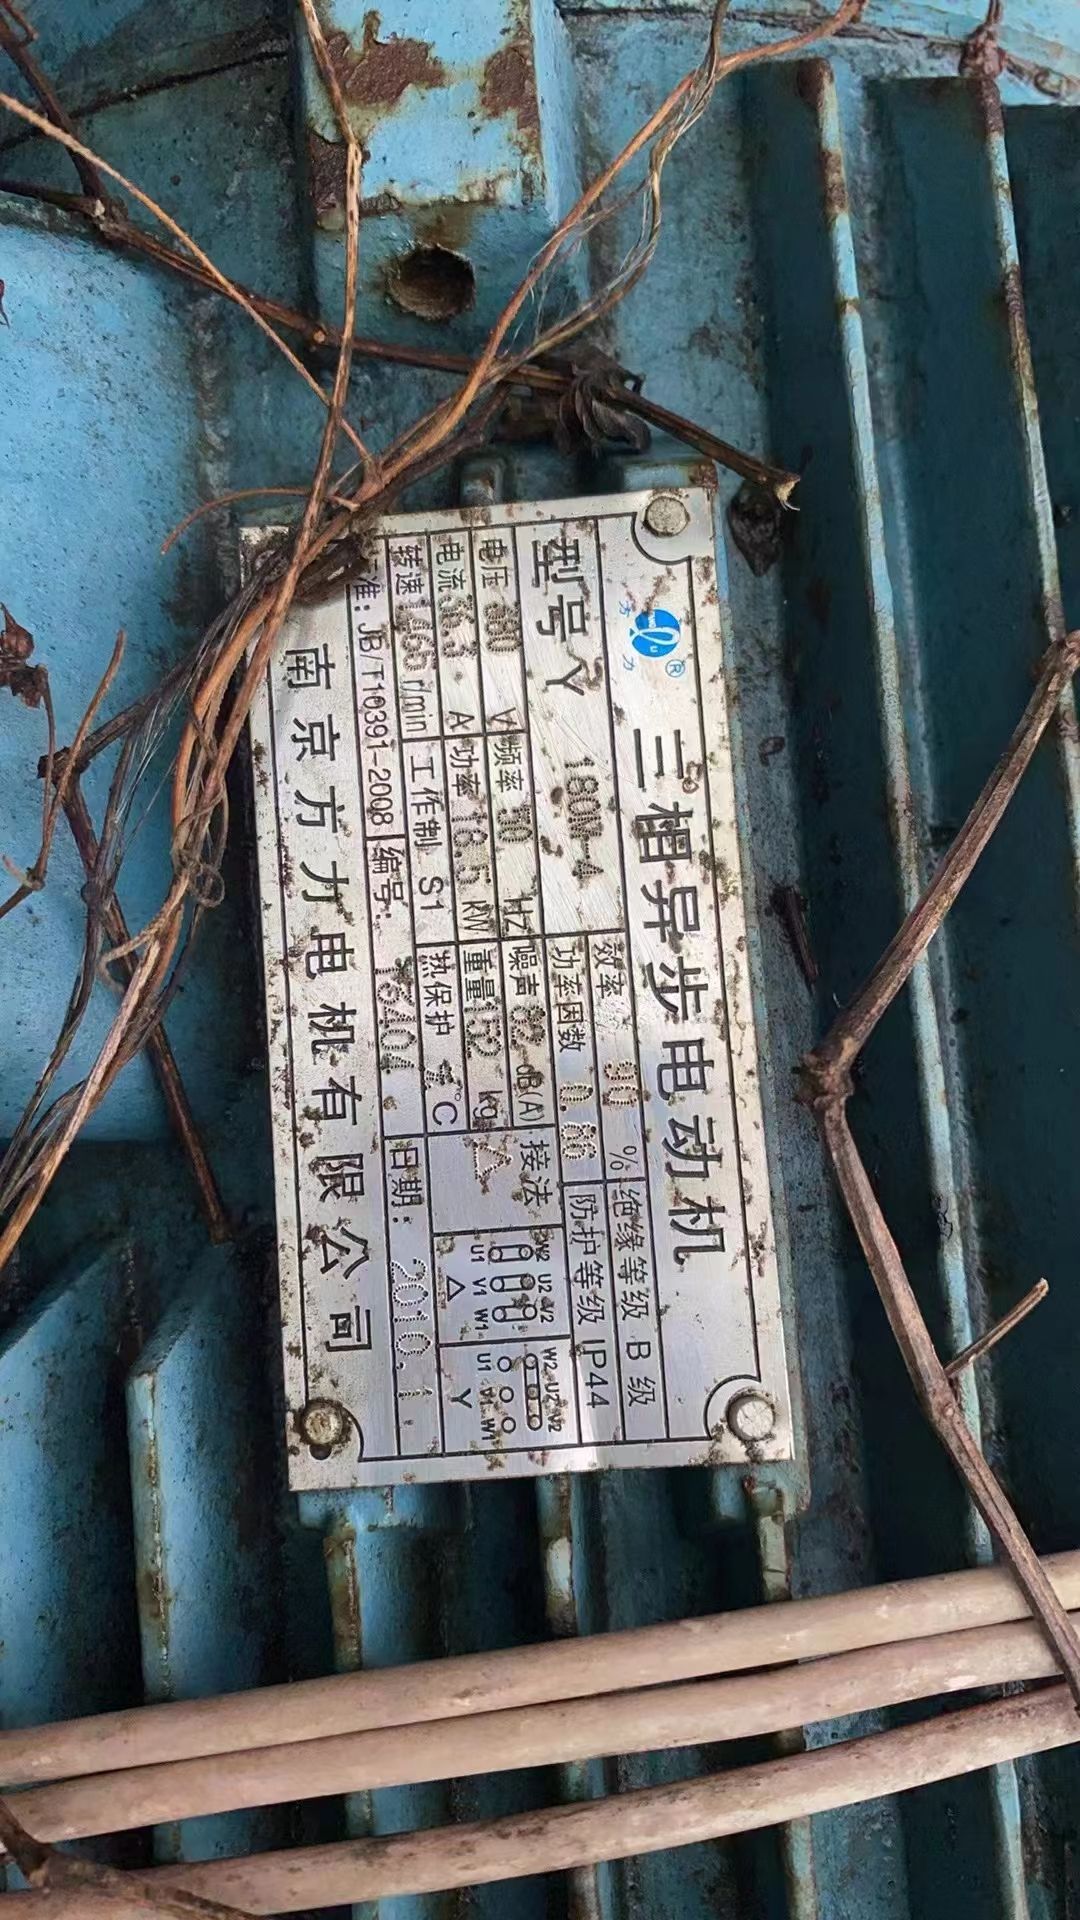 方力 ®
三相异步电动机
型号 Y 180M-4 效率 90 % 绝缘等级 B 级
功率因数 0.86 防护等级 IP44
电压 380 V 频率 50 Hz 噪声 82 dB(A) 接法 △
电流 36.3 A 功率 18.5 kW 重量 152 kg
转速 r/min 工作制 S1 热保护 ℃
W2 U2 V2
U1 V1 W1
△
W2 U2 V2
U1 V1 W1
Y
准: JB/T10391-2008 编号: 日期: 2010.1
南京方力电机有限公司